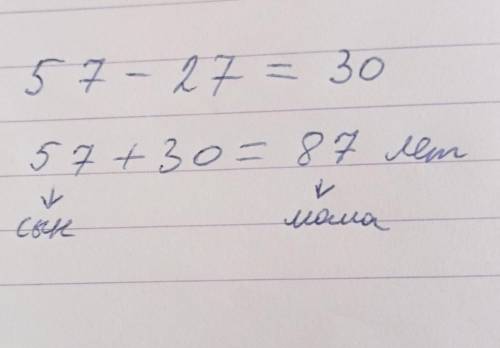 57 - 27 = 30
57 + 30 = 87 лет
↓ ↓
сын мама